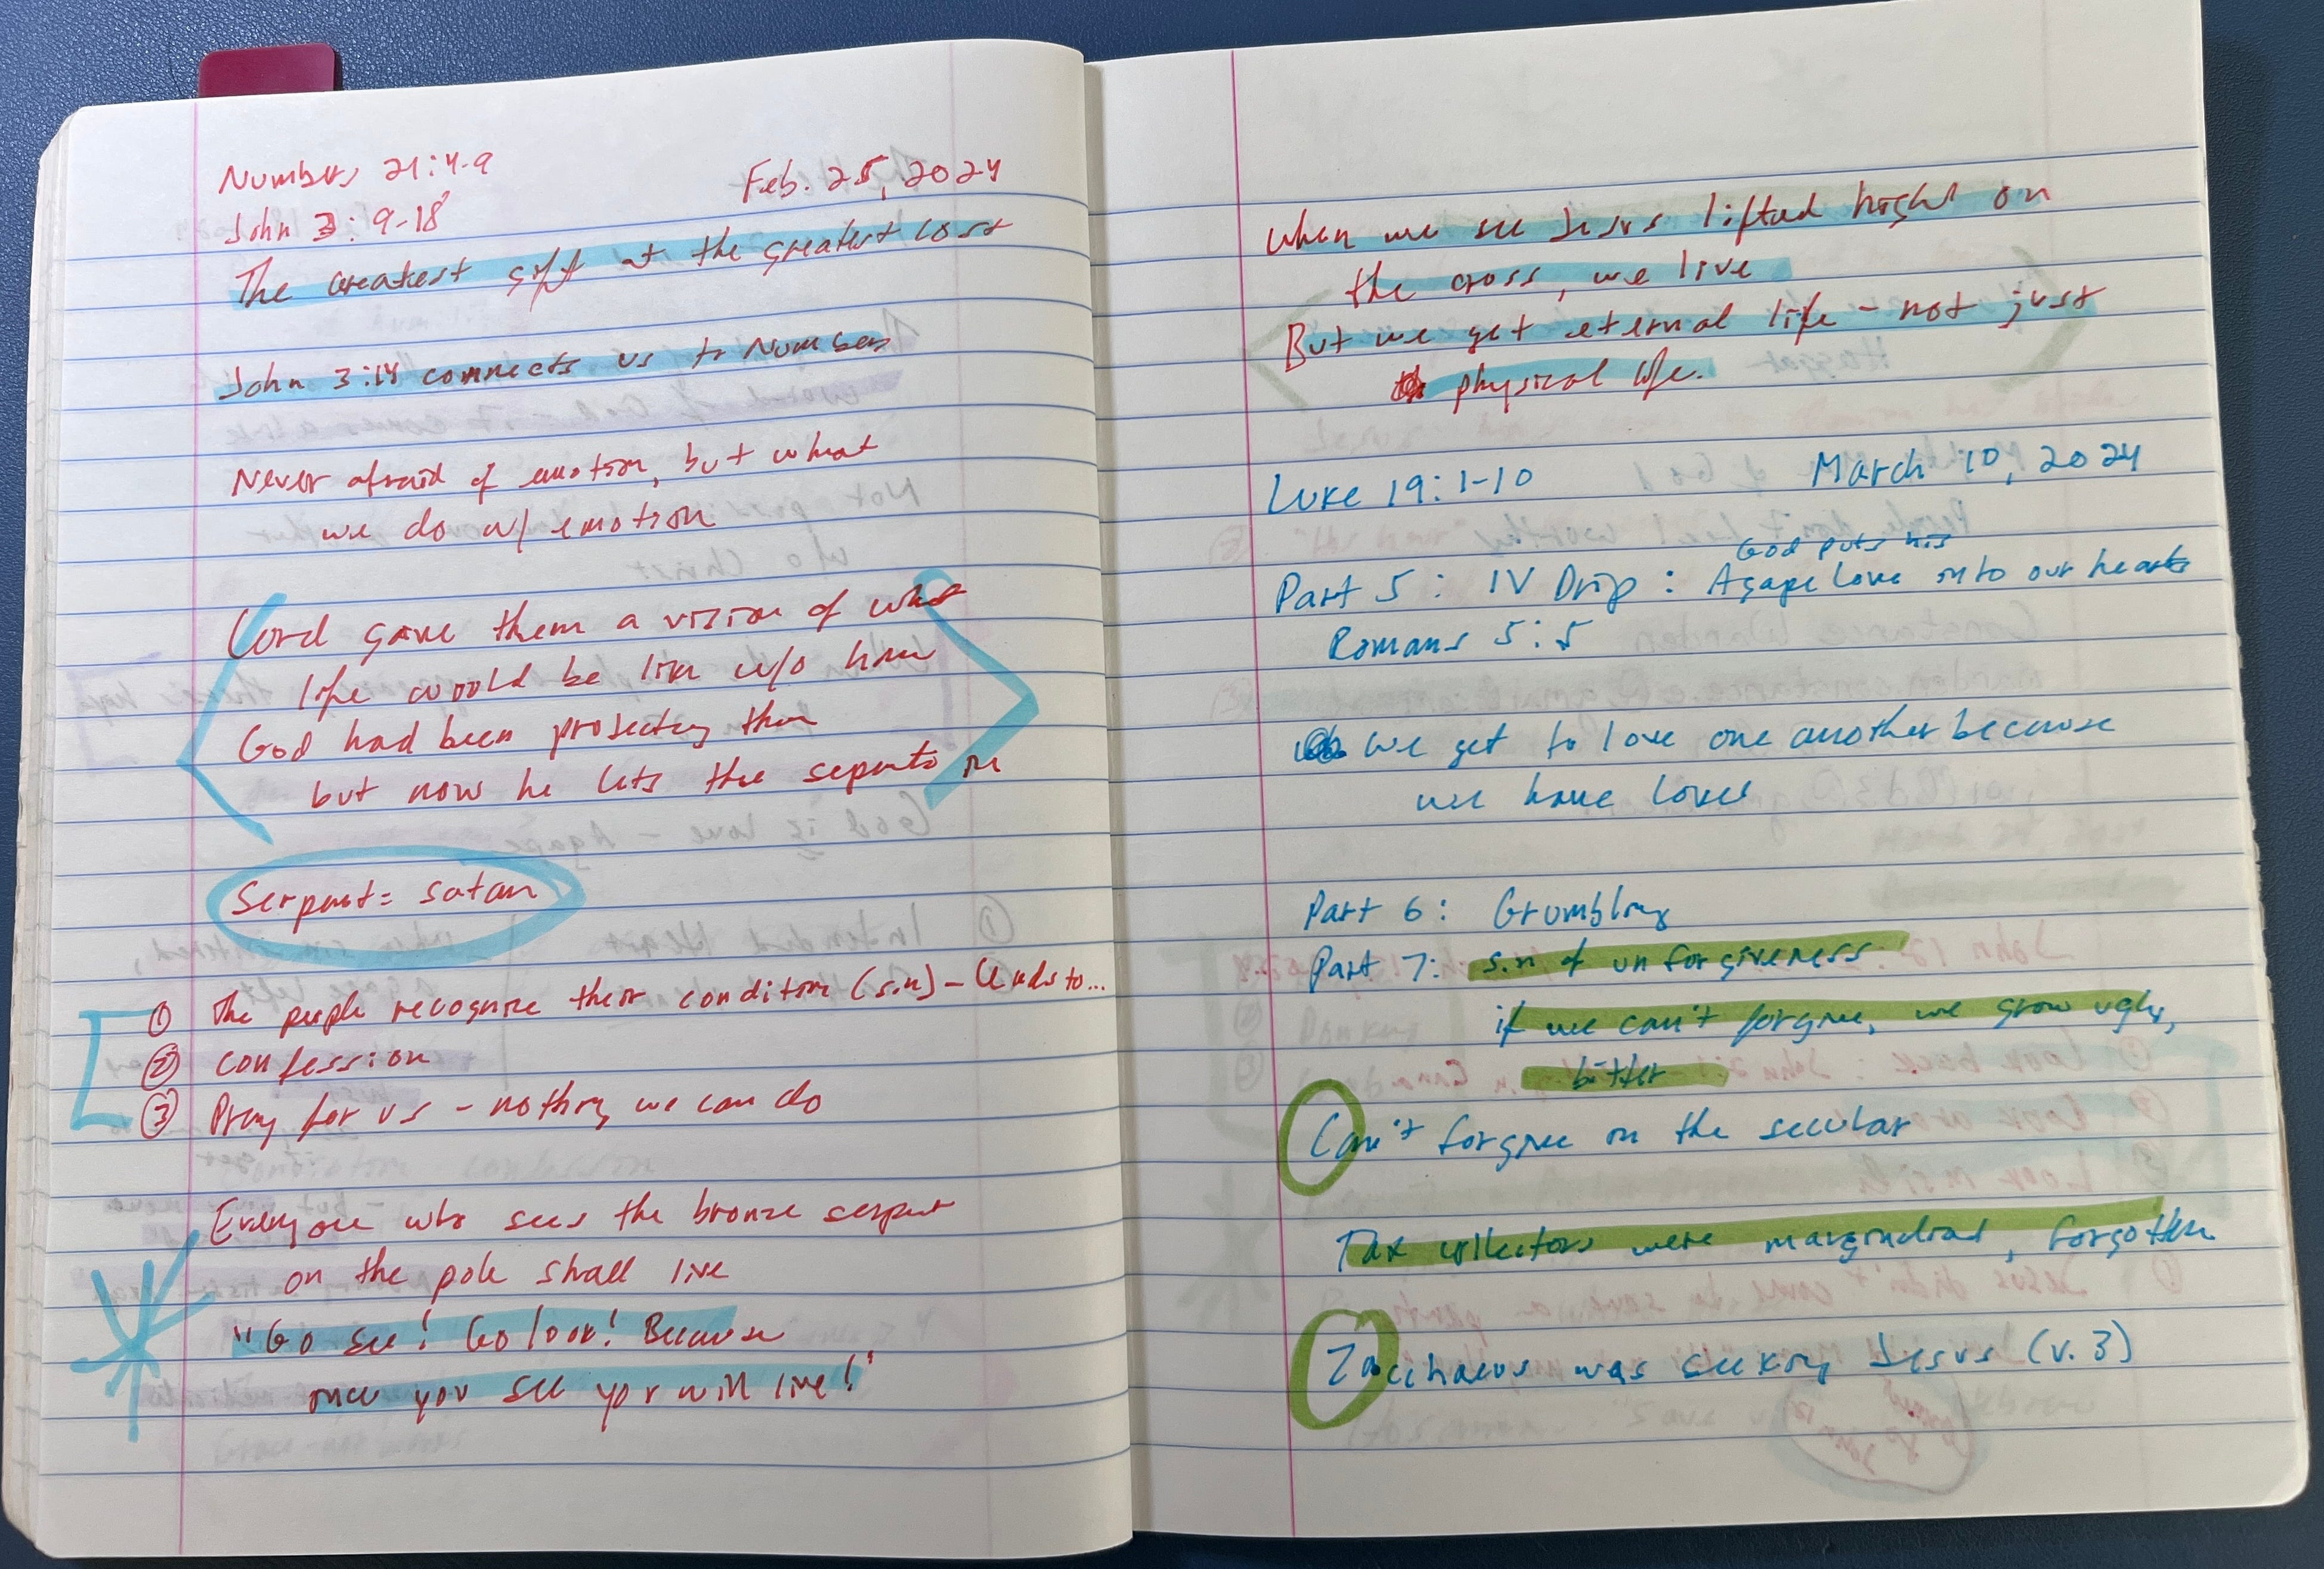 Numbers 21:4-9
Feb. 25, 2024
John 3: 9-18
The Greatest gift at the greatest cost
John 3:14 connects us to Numbers
Never afraid of emotion, but what
we do w/ emotion
Lord gave them a vision of what
life would be like w/o him
God had been protecting them
but now he lets the serpents in
Serpent = Satan
① The people recognize their condition (sin) - Leads to...
② Confession
③ Pray for us - nothing we can do
Everyone who sees the bronze serpent
on the pole shall live
"Go see! Go look! Because
once you see you will live!"
When we see Jesus lifted high on
the cross, we live
But we get eternal life - not just
physical life.
Luke 19:1-10
March 10, 2024
God puts his
Part 5: IV Drip: Agape Love into our hearts
Romans 5:5
We get to love one another because
we have love
Part 6: Grumbling
Part 7: sin of unforgiveness
if we can't forgive, we grow ugly,
bitter
Can't forgive on the secular
Tax collectors were marginalized, forgotten
Zacchaeus was seeking Jesus (v.3)